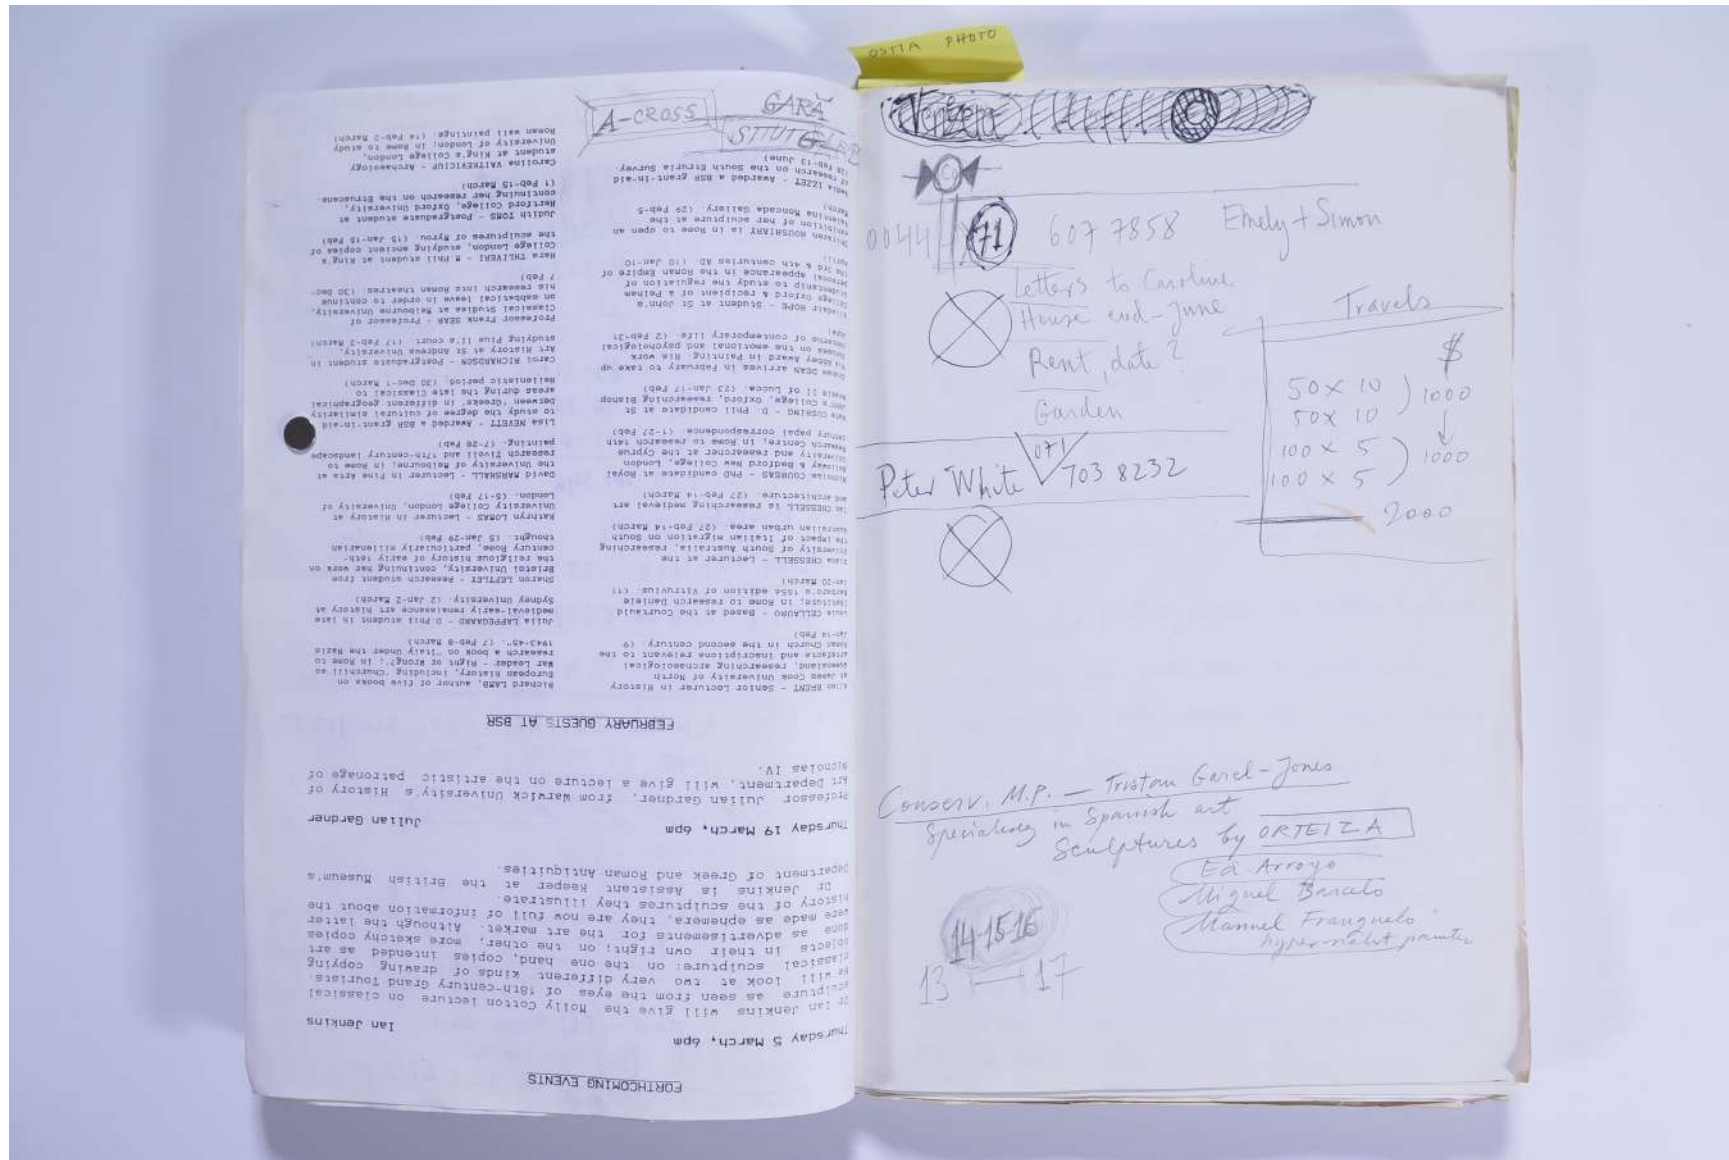 OSTIA PHOTO
A-CROSS
GARĂ
FORTHCOMING EVENTS
Thursday 5 March, 6pm Ian Jenkins
Dr Ian Jenkins will give the Molly Cotton lecture on classical
sculpture as seen from the eyes of 18th-century Grand Tourists.
He will look at two very different kinds of drawing copying
classical sculpture: on the one hand, copies intended as art
objects in their own right; on the other, more sketchy copies
done as advertisements for the art market. Although the latter
were made as ephemera, they are now full of information about the
history of the sculptures they illustrate.
Dr Jenkins is Assistant Keeper at the British Museum's
Department of Greek and Roman Antiquities.
Thursday 19 March, 6pm Julian Gardner
Professor Julian Gardner, from Warwick University's History of
Art Department, will give a lecture on the artistic patronage of
Nicholas IV.
FEBRUARY GUESTS AT BSR
BRENT - Senior Lecturer in History
at James Cook University of North
Queensland, researching archaeological
artefacts and inscriptions relevant to the
Roman Church in the second century. (9
Jan-14 Feb)
Louis CELLAURO - Based at the Courtauld
Institute, in Rome to research Daniele
Barbaro's 1556 edition of Vitruvius. (11
Jan-20 March)
Diana CHESSELL - Lecturer at the
University of South Australia, researching
the impact of Italian migration on South
Australian urban area. (27 Feb-14 March)
Ian CHESSELL is researching medieval art
and architecture. (27 Feb-14 March)
Nicholas COUREAS - PhD candidate at Royal
Holloway & Bedford New College, London
University and researcher at the Cyprus
Research Centre, in Rome to research 14th
century papal correspondence (1-27 Feb)
Kate CUSHING - D. Phil candidate at St
John's College, Oxford, researching Bishop
Anselm II of Lucca. (23 Jan-17 Feb)
DEAN arrives in February to take up
his Abbey Award in Painting. His work
focuses on the emotional and psychological
concerns of contemporary life. (2 Feb-31
HOPE - Student at St John's
College Oxford & recipient of a Pelham
studentship to study the regulation of
personal appearance in the Roman Empire of
the 3rd & 4th centuries AD. (10 Jan-10
April)
Shirazeh HOUSHIARY is in Rome to open an
exhibition of her sculpture at the
Valentina Moncada Gallery. (29 Feb-5
March)
Nadia IZZET - Awarded a BSR grant-in-aid
of research on the South Etruria Survey.
(26 Feb-13 June)
Richard LAMB, author of five books on
European history, including "Churchill as
War Leader - Right or Wrong?"; in Rome to
research a book on "Italy Under the Nazis
1943-45". (7 Feb-8 March)
Julia LAPPEGAARD - D.Phil student in late
medieval-early renaissance art history at
Sydney University. (2 Jan-2 March)
Sharon LEFTLEY - Research student from
Bristol University, continuing her work on
the religious history of early 16th-
century Rome, particularly millenarian
thought. (5 Jan-29 Feb)
Kathryn LOMAS - Lecturer in History at
University College London, University of
London. (5-17 Feb)
David MARSHALL - Lecturer in Fine Arts at
the University of Melbourne; in Rome to
research Tivoli and 17th-century landscape
painting. (7-28 Feb)
Lisa NEVETT - Awarded a BSR grant-in-aid
to study the degree of cultural similarity
between 'Greeks' in different geographical
areas during the late Classical to
Hellenistic period. (30 Dec-1 March)
Carol RICHARDSON - Postgraduate student in
Art History at St Andrews University,
studying Pius II's court. (17 Feb-3 March)
Professor Frank SEAR - Professor of
Classical Studies at Melbourne University,
on sabbatical leave in order to continue
his research into Roman theatres. (30 Dec-
7 Feb)
Hara THLIVERI - M Phil student at King's
College London, studying ancient copies of
the sculptures of Myron. (15 Jan-15 Feb)
Judith TOMS - Postgraduate student at
Hertford College, Oxford University,
continuing her research on the Etruscans.
(1 Feb-15 March)
Carolina VAITKEVICIUP - Archaeology
student at King's College London,
University of London; in Rome to study
Roman wall paintings. (14 Feb-2 March)
0044 71 607 7858 Emely + Simon
Letters to Caroline
House end-June
Rent, date?
Garden
Peter White 071 703 8232
Travels
$
50 x 10 ) 1000
50 x 10
↓
100 x 5 ) 1000
100 x 5
2000
Conserv. M.P. — Tristan Garel-Jones
Specialising in Spanish art
Sculptures by ORTEIZA
Ed. Arroyo
Miguel Barcelo
Manuel Franquelo
hyperrealist painter
14-15-16
13 — 17